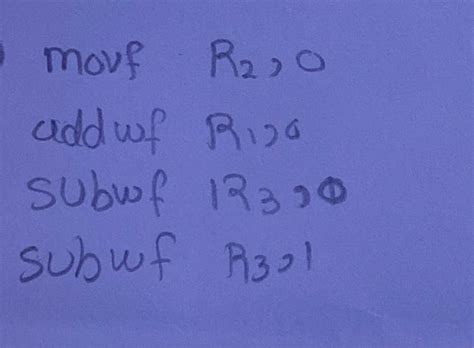 movf R2,0
addwf R1,0
subwf R3,0
subwf R3,1